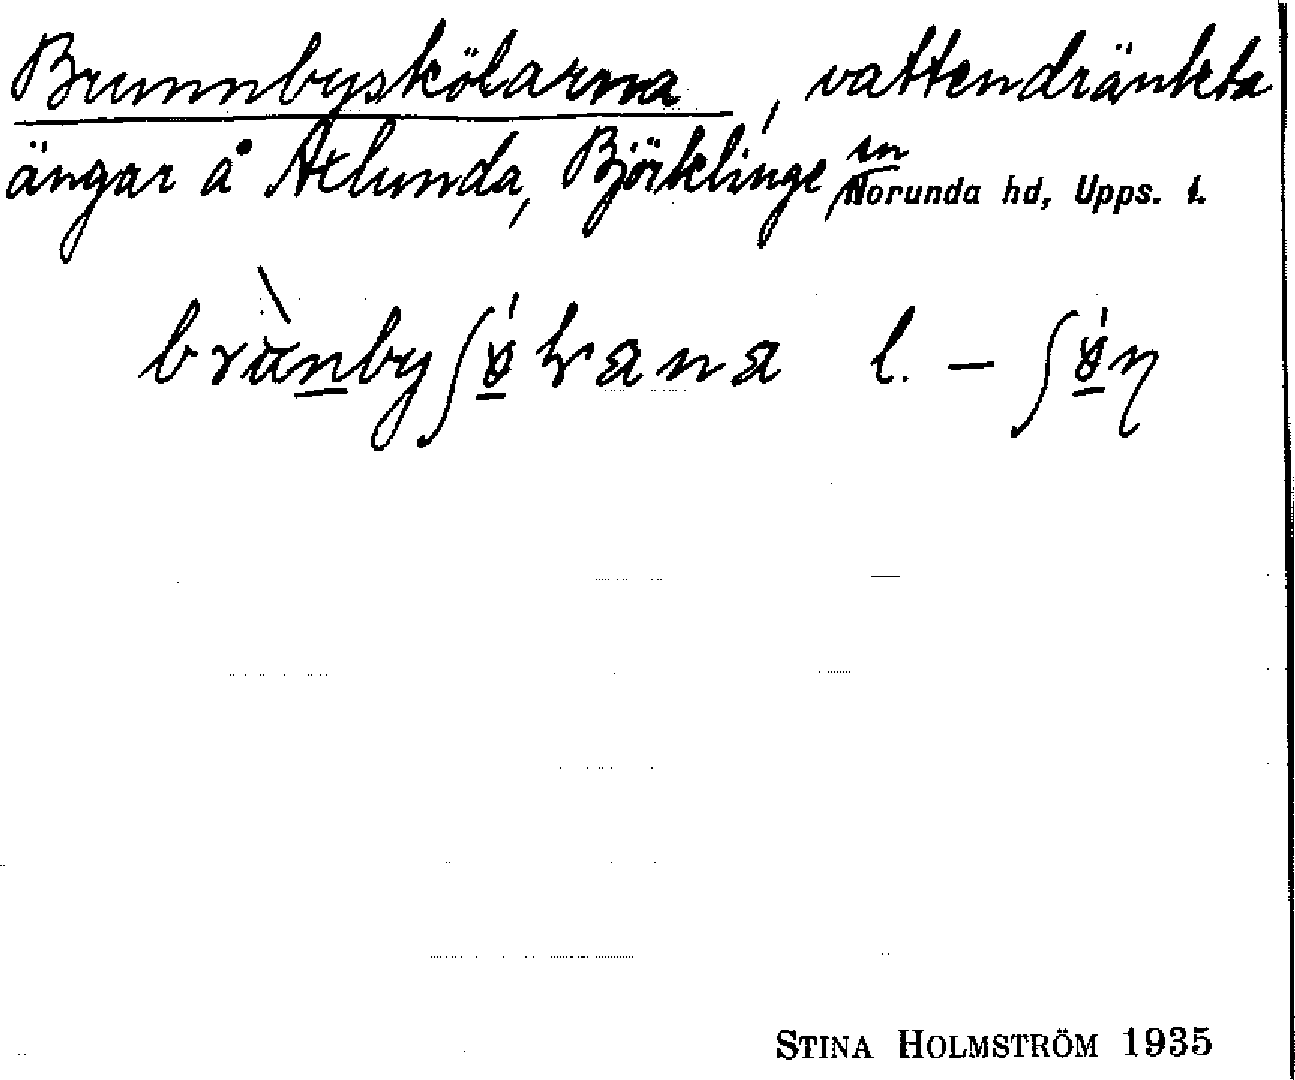 Brunnbyskölarna, vattendränkta
ängar å Axlunda, Björklinge sn
Norunda hd, Upps. l.
l. –
STINA HOLMSTRÖM 1935